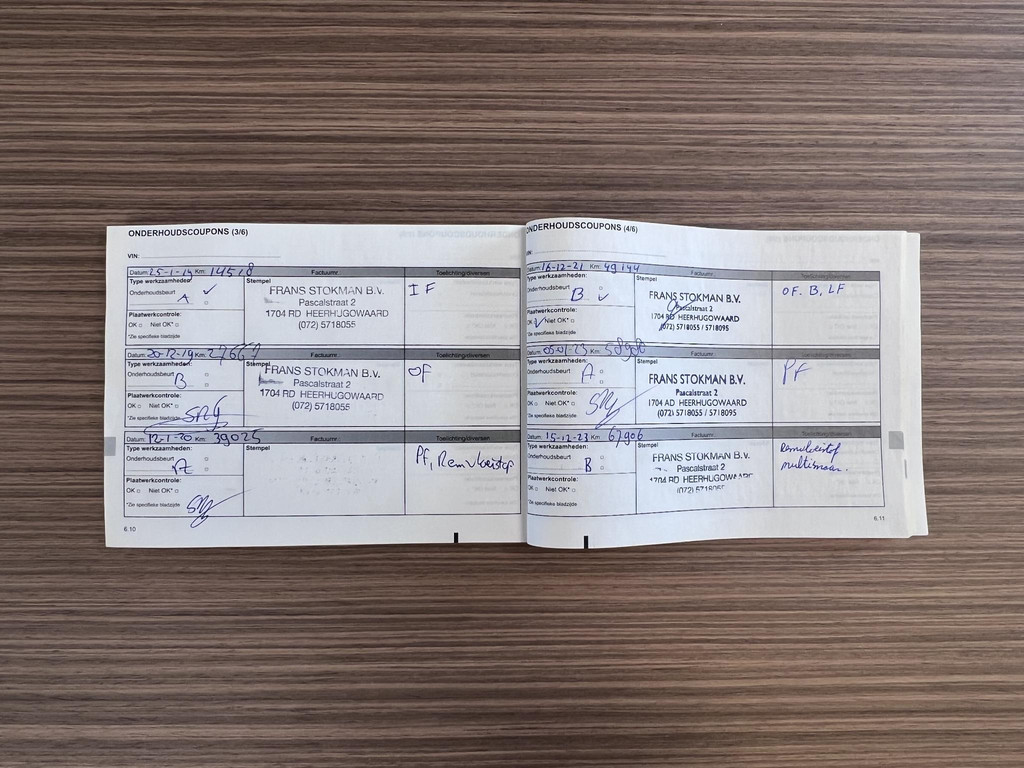 ONDERHOUDSCOUPONS (3/6)
VIN:
Datum: 25-1-19 Km: 14518 Factuurnr.: Toelichting/diversen
Type werkzaamheden: Stempel
Onderhoudsbeurt ✓
A
FRANS STOKMAN B.V.
Pascalstraat 2
1704 RD HEERHUGOWAARD
(072) 5718055
IF
Plaatwerkcontrole:
OK □ Niet OK* □
*Zie specifieke bladzijde
Datum: 20-12-19 Km: 27667 Factuurnr.: Toelichting/diversen
Type werkzaamheden: Stempel
Onderhoudsbeurt
B
FRANS STOKMAN B.V.
Pascalstraat 2
1704 RD HEERHUGOWAARD
(072) 5718055
OF
Plaatwerkcontrole:
OK □ Niet OK* □
*Zie specifieke bladzijde
Datum: 12-1-20 Km: 39025 Factuurnr.: Toelichting/diversen
Type werkzaamheden: Stempel
Onderhoudsbeurt
A
Pf, Remvloeistof
Plaatwerkcontrole:
OK □ Niet OK* □
*Zie specifieke bladzijde
6.10
ONDERHOUDSCOUPONS (4/6)
VIN:
Datum: 16-12-21 Km: 49144 Factuurnr.: Toelichting/diversen
Type werkzaamheden: Stempel
Onderhoudsbeurt
B ✓
FRANS STOKMAN B.V.
Pascalstraat 2
1704 RD HEERHUGOWAARD
(072) 5718055 / 5718095
OF. B, LF
Plaatwerkcontrole:
OK ✓ Niet OK* □
*Zie specifieke bladzijde
Datum: 05-01-23 Km: Factuurnr.: Toelichting/diversen
Type werkzaamheden: Stempel
Onderhoudsbeurt
A
FRANS STOKMAN B.V.
Pascalstraat 2
1704 AD HEERHUGOWAARD
(072) 5718055 / 5718095
PF
Plaatwerkcontrole:
OK □ Niet OK* □
*Zie specifieke bladzijde
Datum: 15-12-23 Km: 67906 Factuurnr.: Toelichting/diversen
Type werkzaamheden: Stempel
Onderhoudsbeurt
B
FRANS STOKMAN B.V.
Pascalstraat 2
1704 RD HEERHUGOWAARD
(072) 5718055
Plaatwerkcontrole:
OK □ Niet OK* □
*Zie specifieke bladzijde
6.11